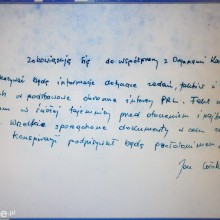 Zobowiązuję się do współpracy z Organami Ko
będę informacje dotyczące zadań, faktów i
w podstawowe obronne interesy PRL. Fakt
w ścisłej tajemnicy przed otoczeniem i najb
Wszelkie sporządzone dokumenty w celu
Konspiracji podpisywał będę pseudonimem
Jan